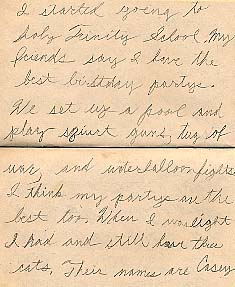 I started going to
Holy Trinity School. My
friends say I have the
best birthday partys.
We set up a pool and
play squirt guns, tug of
war, and waterballoon fights.
I think my partys are the
best too. When I was eight
I had and still have three
cats. Their names are Casey